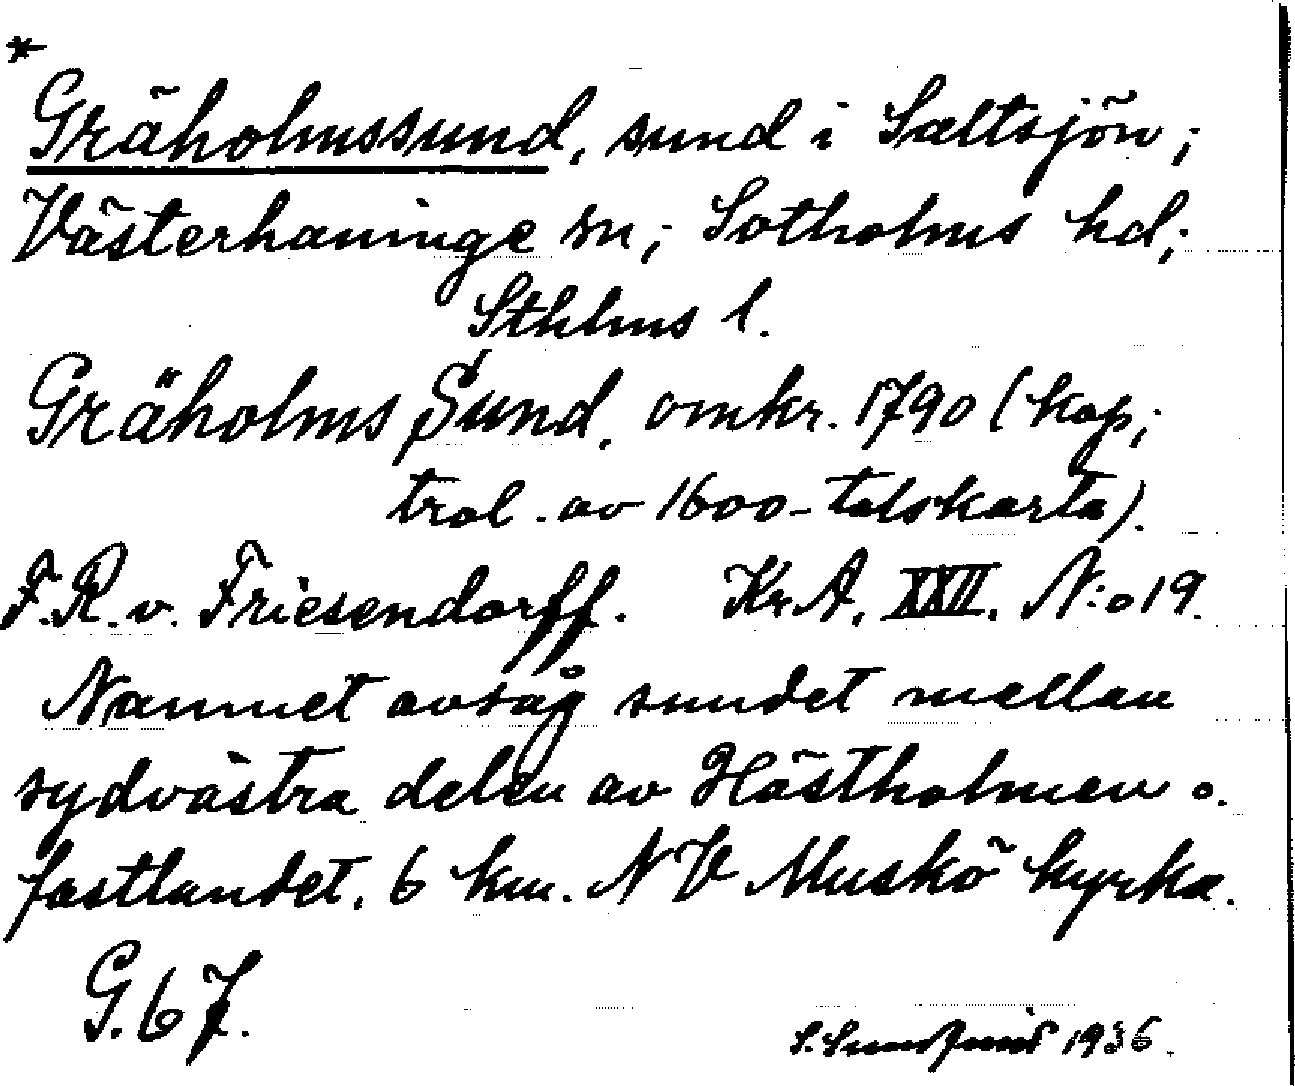 *
Gräholmssund, sund i Saltsjön;
Västerhaninge sn; Sotholms hd;
Sthlms l.
Gräholms Sund, omkr. 1790 (kop;
trol. av 1600-talskarta).
F.R. v. Friesendorff. Kr.A. XXII. N:o 19.
Namnet avsåg sundet mellan
sydvästra delen av Hästholmen o.
fastlandet, 6 km. NV Muskö kyrka.
G. 6 7.
S. Sundqvist 1936.